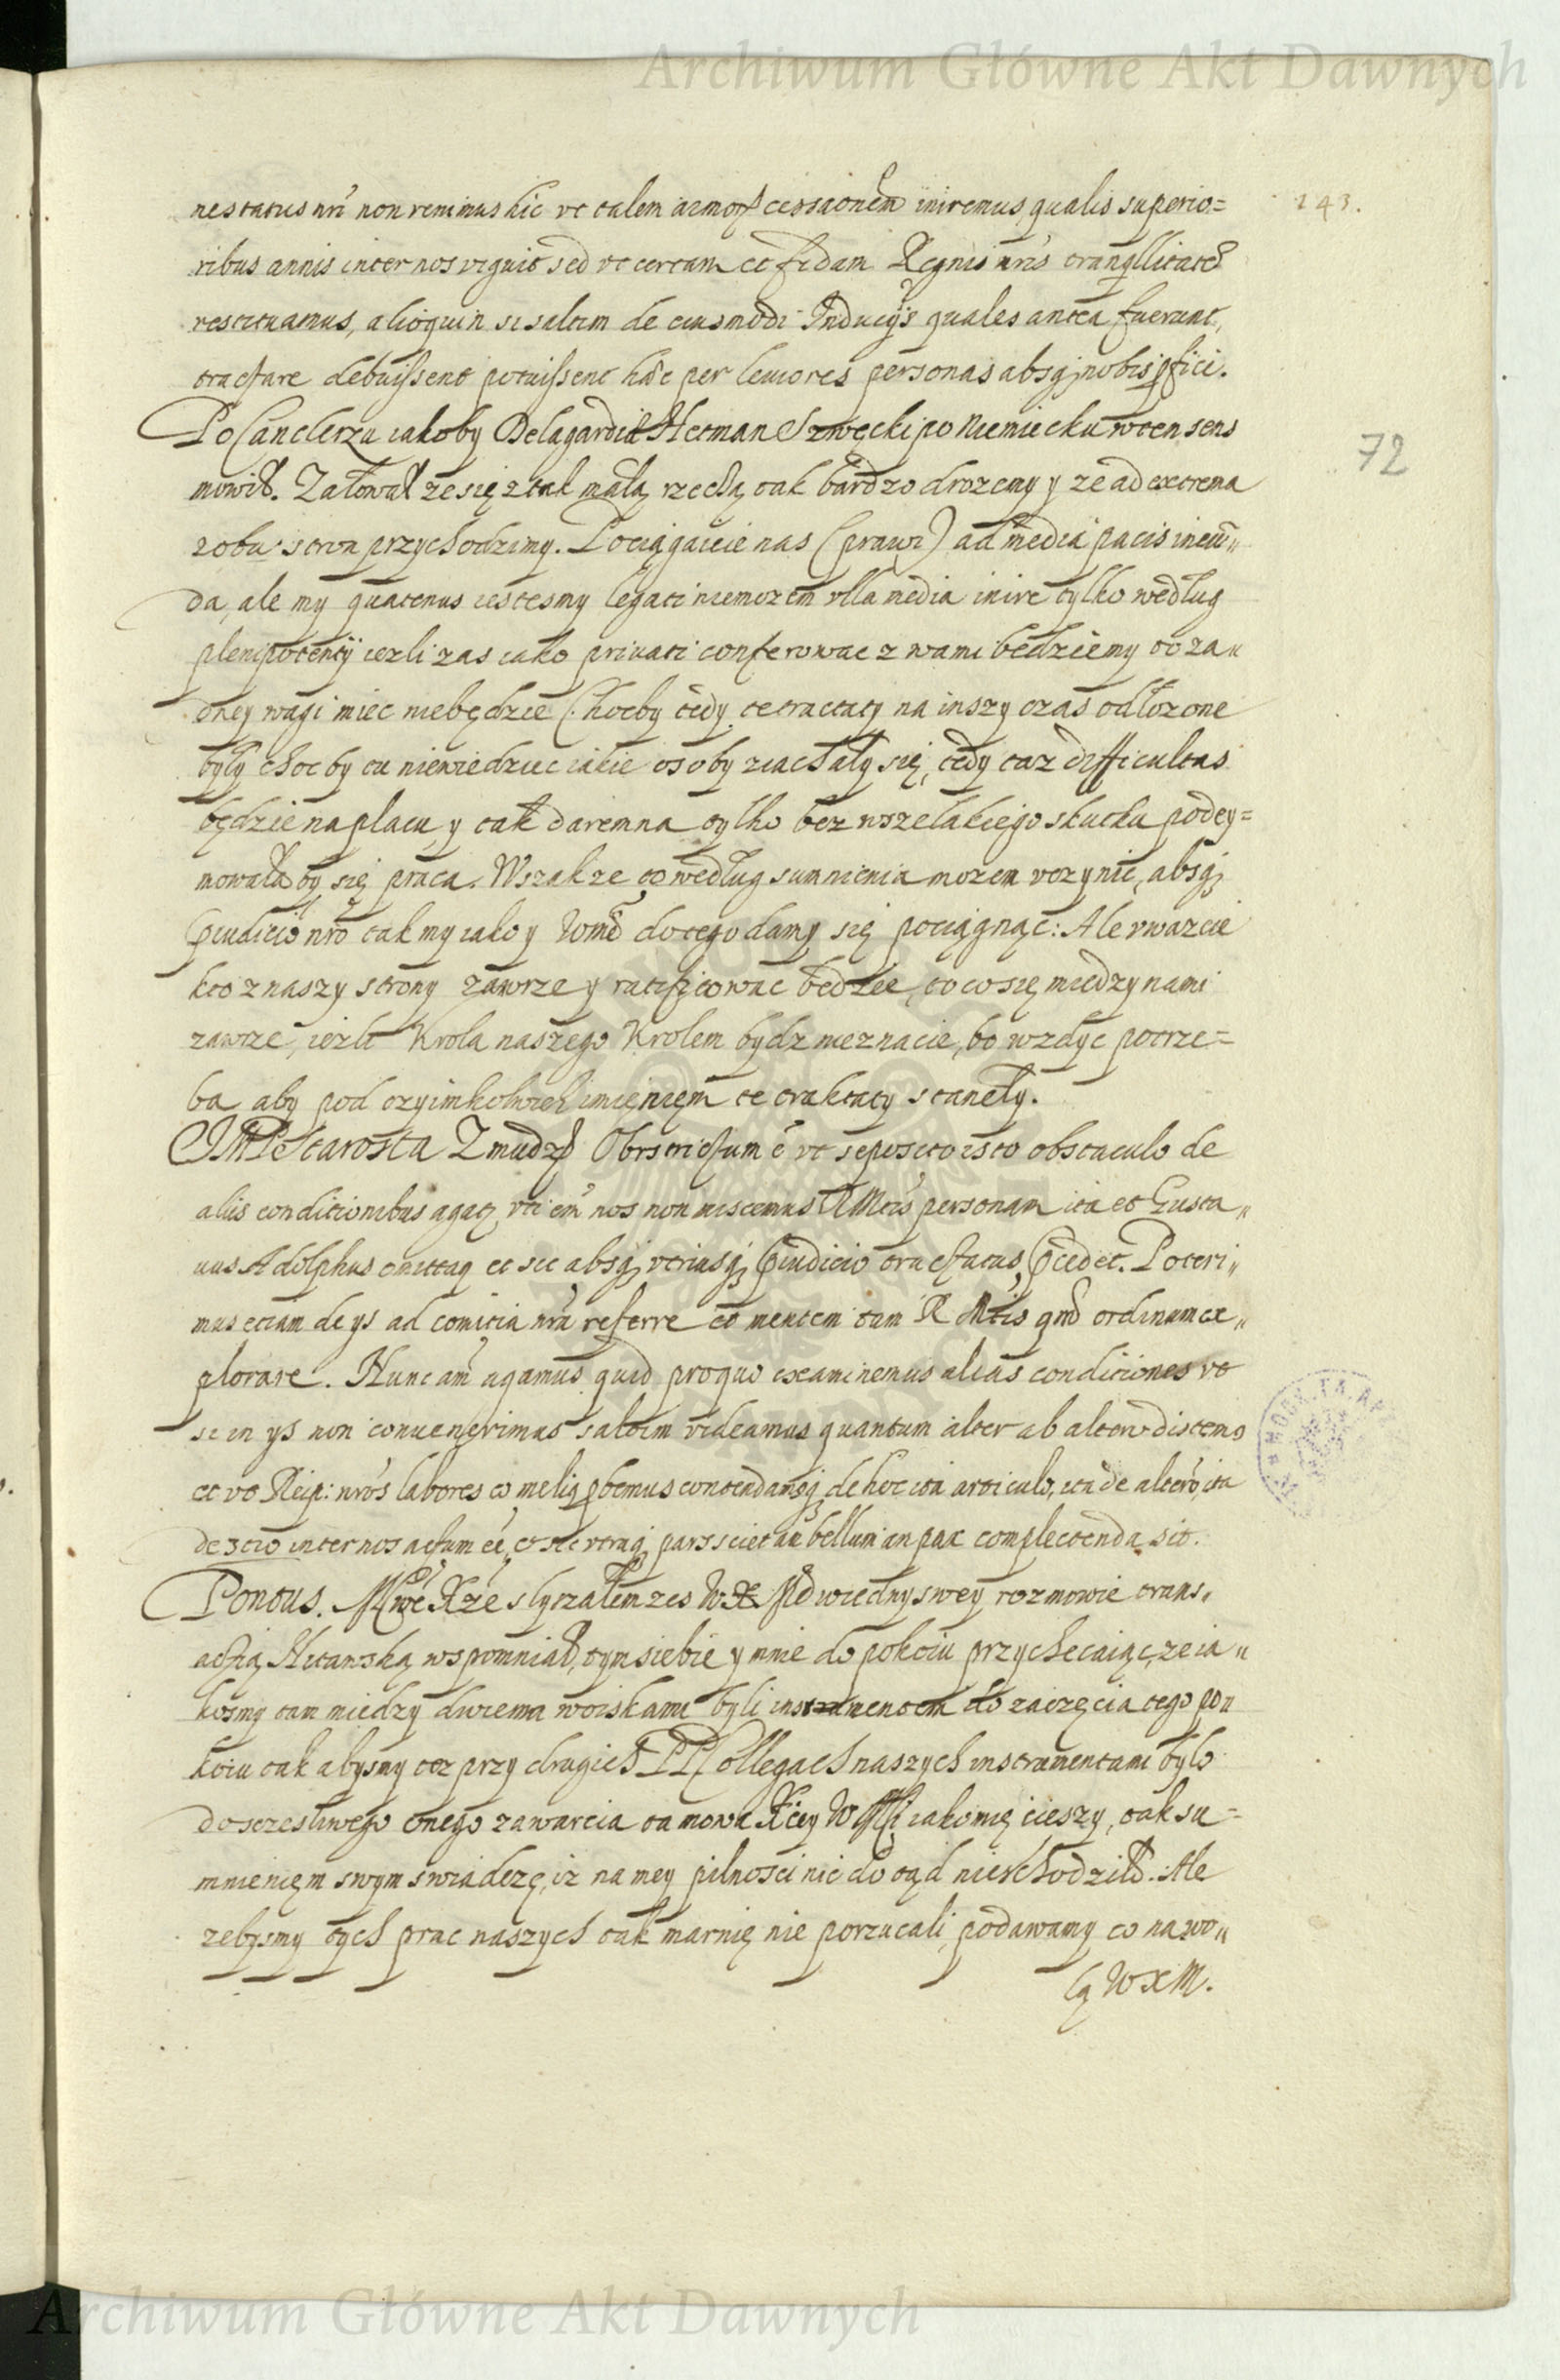 Archiwum Główne Akt Dawnych
143.
72
nes status nri non venimus hic ut talem armor cessaonem iniremus, qualis superio=
ribus annis inter nos viguit sed ut certam et fidam Regnis nris tranqllitate
restituamus, alioquin si saltim de eiusmodi Inducijs quales antea fuerunt,
tractare debuissent potuissent haec per leviores personas absq nobis pfici.
Po Canclerzu iakoby Delagardie Hetman Szwecki po Niemiecku w ten sens
mowił. Załował ze się z tak małą rzeczą tak bardzo drozemy y ze ad extrema
z obu stron przychodzimy. Pociągaicie nas (prawi) ad media pacis ineun„
da, ale my quatenus iestesmy legati niemozem ulla media inire tylko według
plenipotenty iezli zas iako privati conferowac z wami będziemy to za„
dney wagi miec niebędzie Choćby tedy te tractaty na inszy czas odłozone
były choc by tu niewiedziec iakie osoby ziachały się, tedy taz difficultas
będzie na placu, y tak daremna tylko bez wszelakiego skutku podey=
mowała by się praca. Wszakze co według sumnienia mozem uczynić, absq
pjudicio nro tak my iako y Wm do tego damy się pociągnąc: Ale uwazcie
kto z naszy strony zawrze y ratificowac będzie, to co się miedzy nami
zawrze, iezli Krola naszego Krolem bydz nieznacie, bo wzdyc potrze=
ba aby pod czyimkolwiek imięnięm te traktaty stanęły.
JMP Starosta Zmudz Obstrictum e ut seposito isto obstaculo de
aliis conditionibus agat, uti em nos non miscemus RMtis personam ita et Gusta„
uus Adolphus omittaq et sic absq utriusq pjudicio tractatus pcedet. Poteri„
mus etiam de ys ad comitia nra referre et mentem tam R Mtis qm ordinum ex„
plorare. Nunc am agamus quid pro quo examinemus alias conditiones ut
si in ys non convenerimus saltim videamus quantum alter ab altero distemo
et ut Reip: nros labores eo meliq pbemus contendamq de hoc ita articulo, ita de altero ita
de 3tio inter nos actum ee, et sic utraq pars sciet an bellum an pax complectenda sit.
Pontus. Mwe Xze słyszałem zes W X M w iedny swey rozmowie trans„
actią Hitawską wspomniał, tym siebie y mnie do pokoiu przychecaiąc, ze ia„
kosmy tam miedzy dwiema woiskami byli instrumentem do zaczęcia tego po„
koiu tak abysmy tez przy drugich PP Collegach naszych instrumentami byli
do szczesliwego onego zawarcia ta mowa Xcey W M iako mię cieszy, tak su=
mnienięm swym swiadczę, iz na mey pilnosci nic do tąd nieschodziło. Ale
zebysmy tych prac naszych tak marnię nie porzucali, podawamy to na wo„
lą WXM.
Archiwum Główne Akt Dawnych